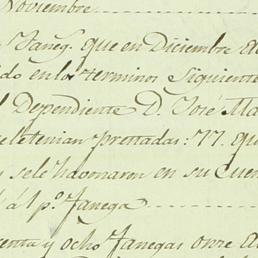 Noviembre
Faneg.s que en Diciembre de
do en los terminos Siguiente
Dependiente D. José Ma
seletenian prettadas: 77. que
y sele hacomaron en su Cuen
á 1 p.o Fanega
enta y ocho Fanegas onze